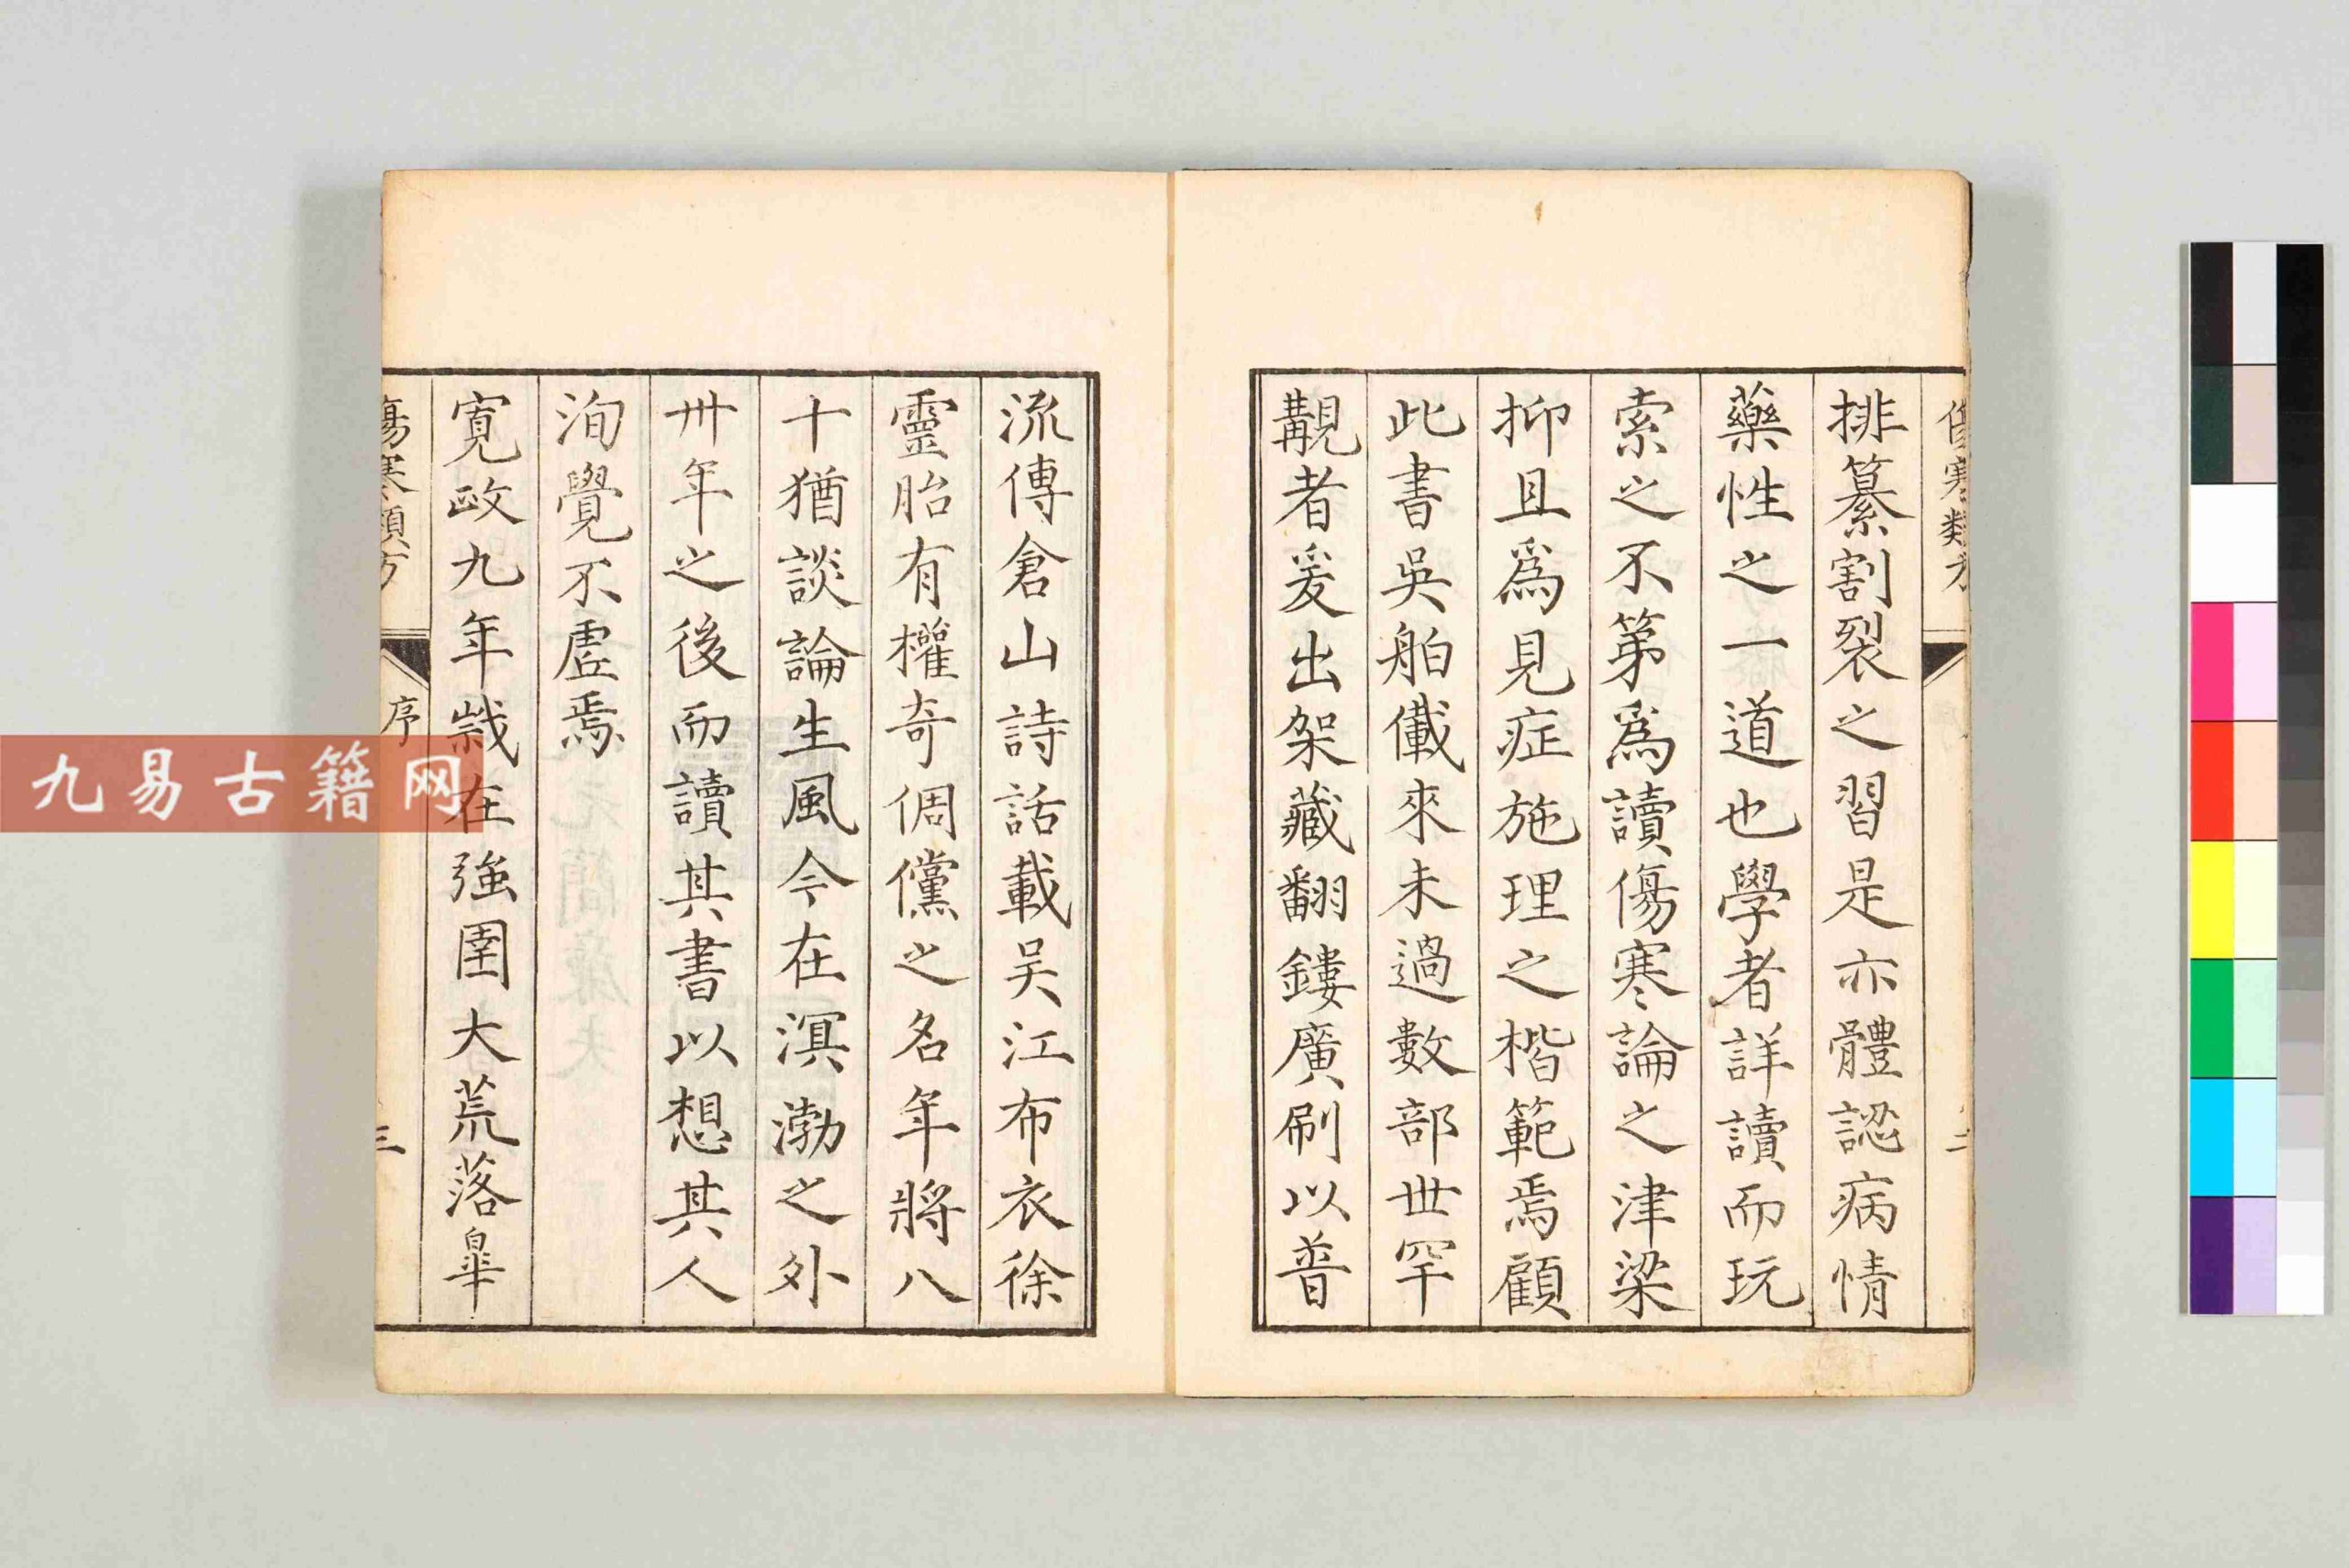 傷寒類方
二
排纂割裂之習是亦體認病情
藥性之一道也學者詳讀而玩
索之不第爲讀傷寒論之津梁
抑且爲見症施理之楷範焉顧
此書吳舶儎來未過數部世罕
覯者爰出架藏翻鏤廣刷以普
流傳倉山詩話載吴江布衣徐
靈胎有權奇倜儻之名年將八
十猶談論生風今在溟渤之外
卅年之後而讀其書以想其人
洵覺不虛焉
寬政九年歲在強圉大荒落皐
傷寒類方
序
三
九易古籍网